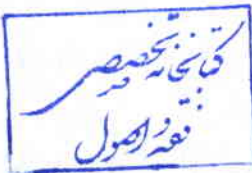 کتابخانه تخصصی
فقه و اصول